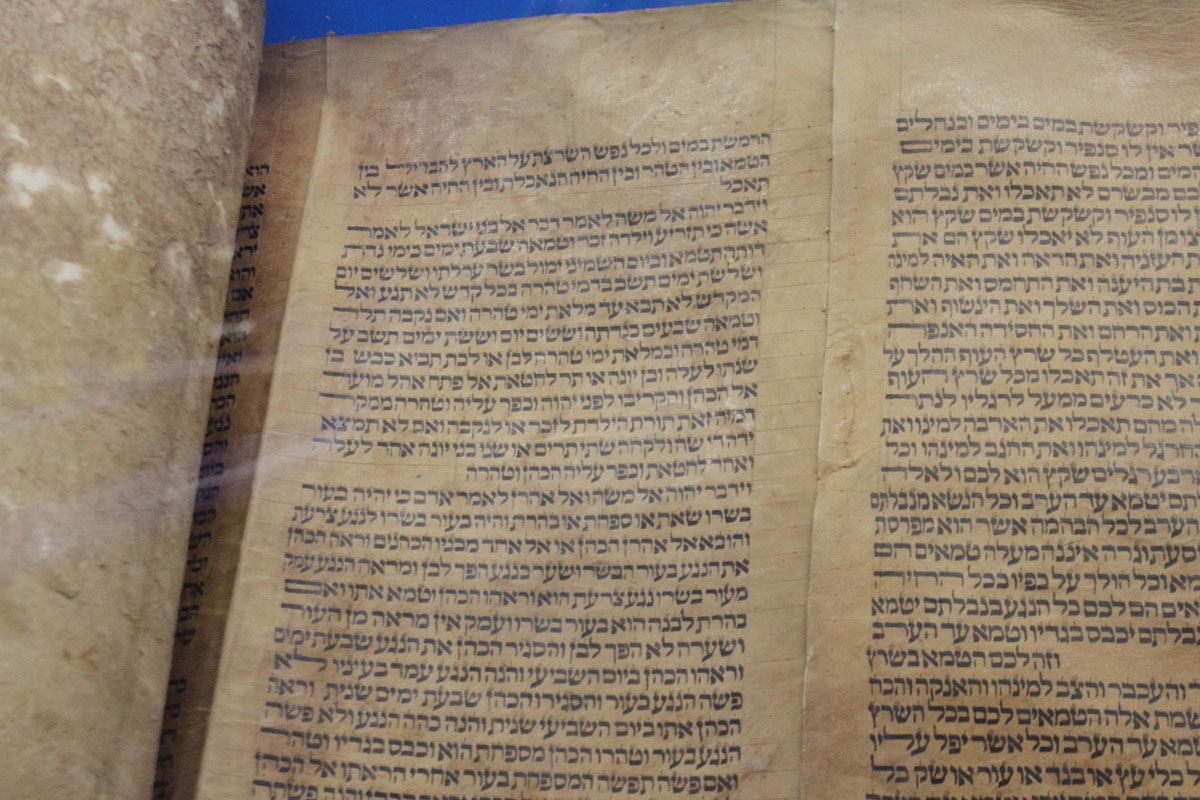 וקשקשת במים בימים ובנחלים
אין לו סנפיר וקשקשת בימים
המים ומכל נפש החיה אשר במים שקץ
מבשרם לא תאכלו ואת נבלתם
לו סנפיר וקשקשת במים שקץ הוא
מן העוף לא יאכלו שקץ הם את
העזניה ואת הראה ואת האיה למינה
בת היענה ואת התחמס ואת השחף
הכוס ואת השלך ואת הינשוף ואת
ואת הרחם ואת החסידה האנפה
ואת העטלף כל שרץ העוף ההלך על
אך את זה תאכלו מכל שרץ העוף
לא כרעים ממעל לרגליו לנתר
מהם תאכלו את הארבה למינו ואת
למינהו ואת החגב למינהו וכל
ארבע רגלים שקץ הוא לכם ולאלה
יטמא עד הערב וכל הנשא מנבלתם
הערב לכל הבהמה אשר הוא מפרסת
וגרה איננה מעלה טמאים הם
וכל הולך על כפיו בכל החיה
הם לכם כל הנגע בנבלתם יטמא
נבלתם יכבס בגדיו וטמא עד הערב
וזה לכם הטמא בשרץ
והעכבר והצב למינהו והאנקה והכח
אלה הטמאים לכם בכל השרץ
עד הערב וכל אשר יפל עליו
כלי עץ או בגד או עור או שק כל
הרמשת במים ולכל נפש השרצת על הארץ להבדיל בין
הטמא ובין הטהר ובין החיה הנאכלת ובין החיה אשר לא
תאכל
וידבר יהוה אל משה לאמר דבר אל בני ישראל לאמר
אשה כי תזריע וילדה זכר וטמאה שבעת ימים כימי נדת
דותה תטמא וביום השמיני ימול בשר ערלתו ושלשים יום
ושלשת ימים תשב בדמי טהרה בכל קדש לא תגע ואל
המקדש לא תבא עד מלאת ימי טהרה ואם נקבה תלד
וטמאה שבעים כנדתה וששים יום וששת ימים תשב על
דמי טהרה ובמלאת ימי טהרה לבן או לבת תביא כבש בן
שנתו לעלה ובן יונה או תר לחטאת אל פתח אהל מועד
אל הכהן והקריבו לפני יהוה וכפר עליה וטהרה ממקר
דמיה זאת תורת הילדת לזכר או לנקבה ואם לא תמצא
ידה די שה ולקחה שתי תרים או שני בני יונה אחד לעלה
ואחד לחטאת וכפר עליה הכהן וטהרה
וידבר יהוה אל משה ואל אהרן לאמר אדם כי יהיה בעור
בשרו שאת או ספחת או בהרת והיה בעור בשרו לנגע צרעת
והובא אל אהרן הכהן או אל אחד מבניו הכהנים וראה הכהן
את הנגע בעור הבשר ושער בנגע הפך לבן ומראה הנגע עמק
מעור בשרו נגע צרעת הוא וראהו הכהן וטמא אתו ואם
בהרת לבנה הוא בעור בשרו ועמק אין מראה מן העור
ושערה לא הפך לבן והסגיר הכהן את הנגע שבעת ימים
וראהו הכהן ביום השביעי והנה הנגע עמד בעיניו לא
פשה הנגע בעור והסגירו הכהן שבעת ימים שנית וראה
הכהן אתו ביום השביעי שנית והנה כהה הנגע ולא פשה
הנגע בעור וטהרו הכהן מספחת הוא וכבס בגדיו וטהר
ואם פשה תפשה המספחת בעור אחרי הראתו אל הכהן